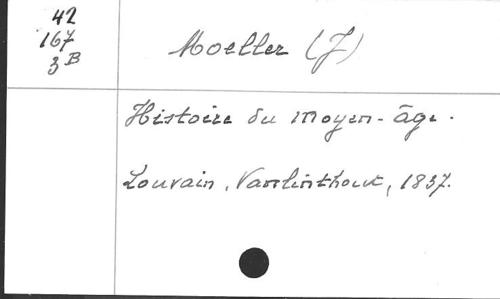 42
167
3B
Moeller (J)
Histoire du moyen-âge.
Louvain, Vanlinthout, 1837.